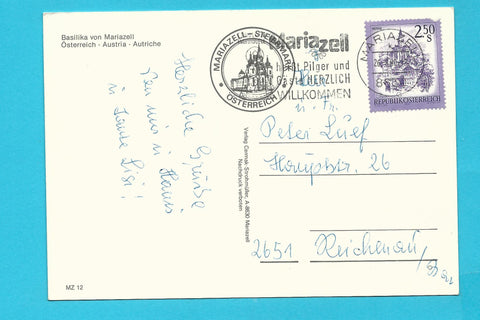 Basilika von Mariazell
Österreich - Austria - Autriche
Herzliche Grüße
von mir u Hansi
u Tante Lisi!
MZ 12
Verlag Cermak-Strohmüller, A-8630 Mariazell
Nachdruck verboten
MARIAZELL - STEIERMARK
ÖSTERREICH
Mariazell
heißt Pilger und
Gäste HERZLICH
WILLKOMMEN
MARIAZELL
2.50
S
REPUBLIK ÖSTERREICH
u. Fr.
Peter Luef
Hauptstr. 26
2651 Reichenau/